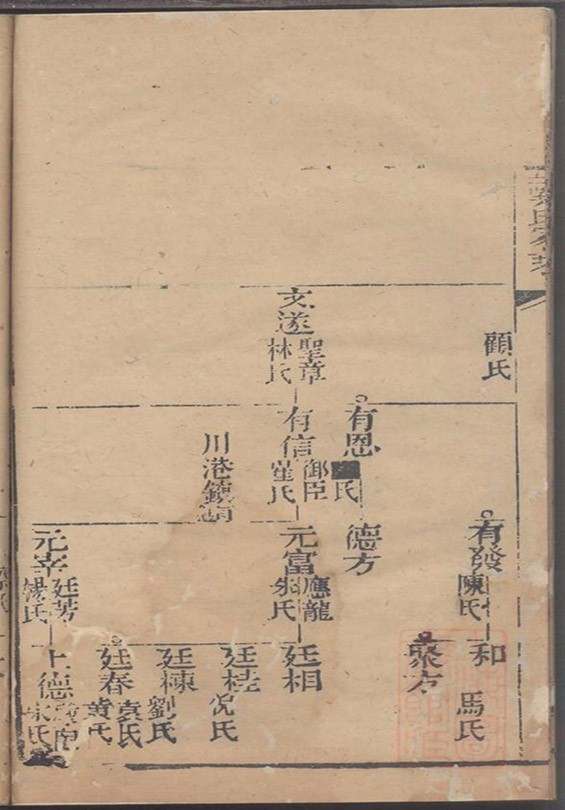 顧氏
有發
陳氏
和
馬氏
聚方
有恩
氏
德方
文遂
聖章
林氏
有信
御臣
崔氏
元富
應龍
朱氏
廷相
川港鎮
廷桂
況氏
廷棟
劉氏
廷春
袁氏
黄氏
元宰
廷芳
楊氏
上德
氏